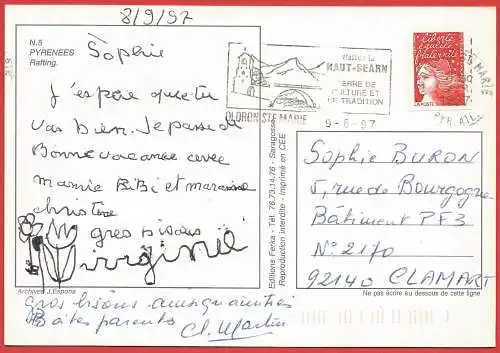 8/9/97
N.5
PYRENEES
Rafting.
Sophie
J'espère que tu
vas bien. Je passe de
Bonne vacance avec
mamie BiBi et marraine
christine
gros bisous
Virginie
Archives J.Espona
gros bisous ainsi qu'a tes
parents Cl. Martin
Editions Ferka - Tél. 76.73.14.76 - Saragosse
Reproduction interdite - Imprimé en CEE
visitez le
HAUT-BEARN
TERRE DE
CULTURE ET
DE TRADITION
OLORON STE MARIE
9-8-97
liberté
égalité
fraternité
LA POSTE
Sophie BURON
5, rue de Bourgogne
Bâtiment PF3
N° 2170
92140 CLAMART
Ne pas écrire au dessous de cette ligne